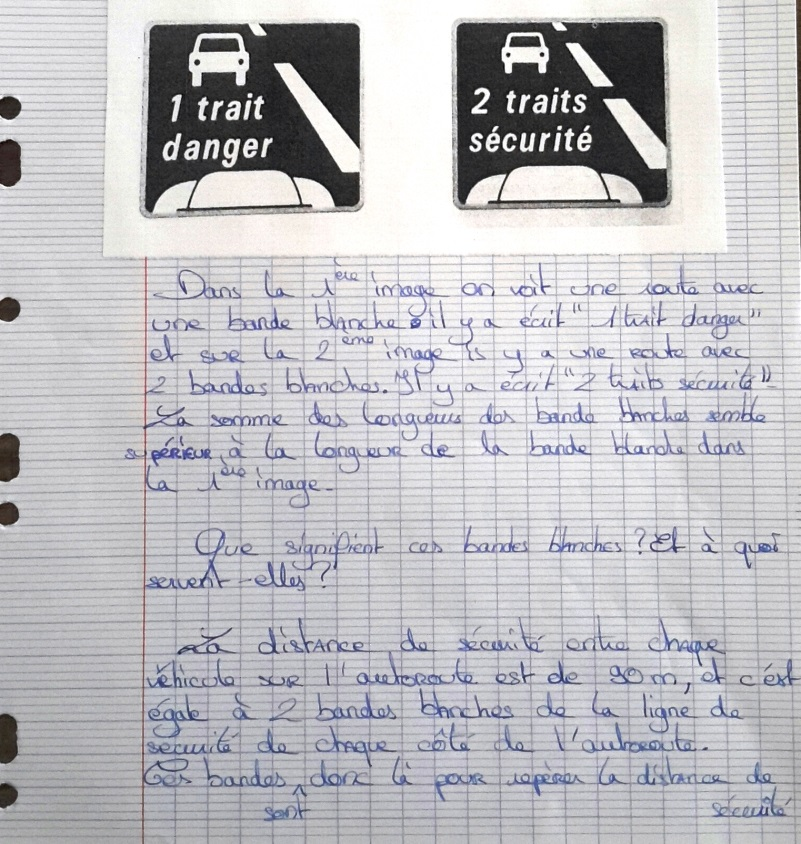 1 trait
danger
2 traits
sécurité
Dans la 1ère image on voit une route avec
une bande blanche il y a écrit " 1 trait danger"
et sur la 2ème image is y a une route avec
2 bandes blanches. Il y a écrit "2 traits sécurité"
La somme des longueurs des bande blanches semble
supérieur à la longueur de la bande blanche dans
la 1ère image.
Que signifient ces bandes blanches ? Et à quoi
servent-elles ?
La distance de sécurité entre chaque
véhicule sur l'autoroute est de 90 m, et c'est
égale à 2 bandes blanches de la ligne de
sécurité de chaque côté de l'autoroute.
Ces bandes sont donc là pour repérer la distance de
sécurité